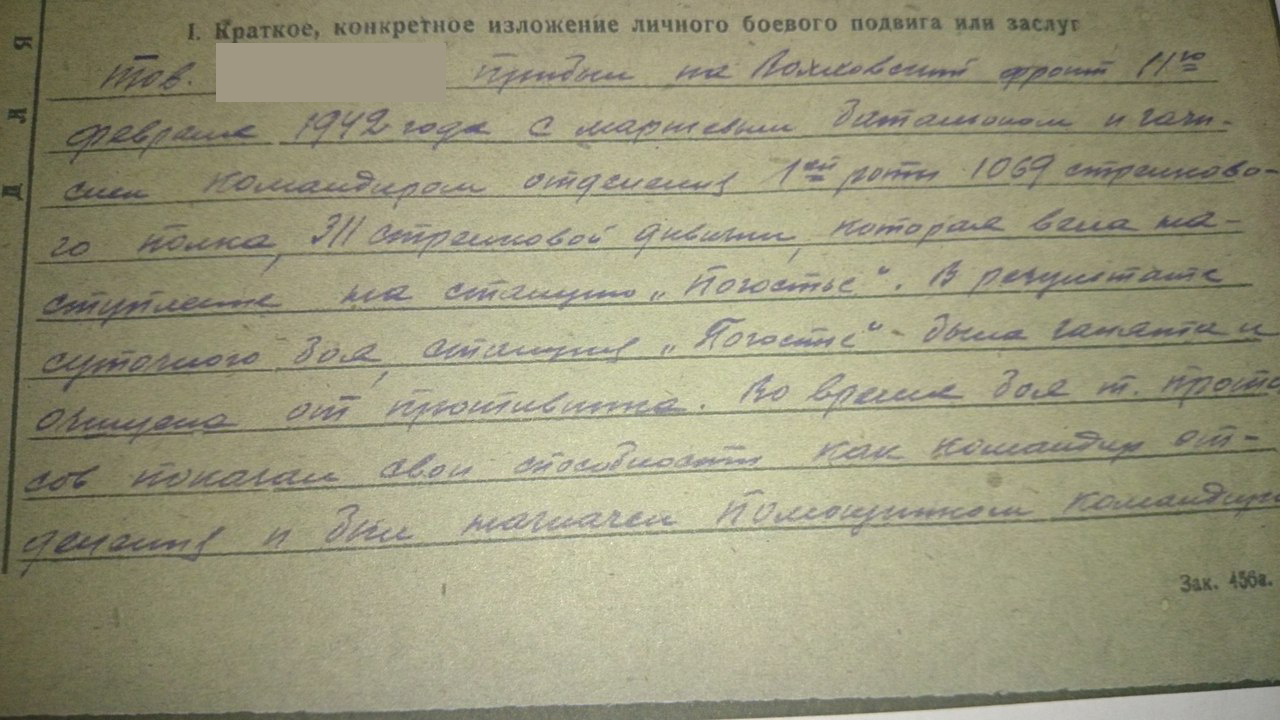 I. Краткое, конкретное изложение личного боевого подвига или заслуг
Тов. прибыл на Волховский фронт 11го
февраля 1942 года с маршевым батальоном и зачи-
слен командиром отделения 1ой роты 1069 стрелково-
го полка, 311 стрелковой дивизии, которая вела на-
ступление на станцию „Погостье“. В результате
суточного боя, станция „Погостье“ была занята и
очищена от противника. Во время боя т. Прота
сов показал свои способности как командир от-
деления и был назначен помощником командира
Зак. 456а.
Д Л Я